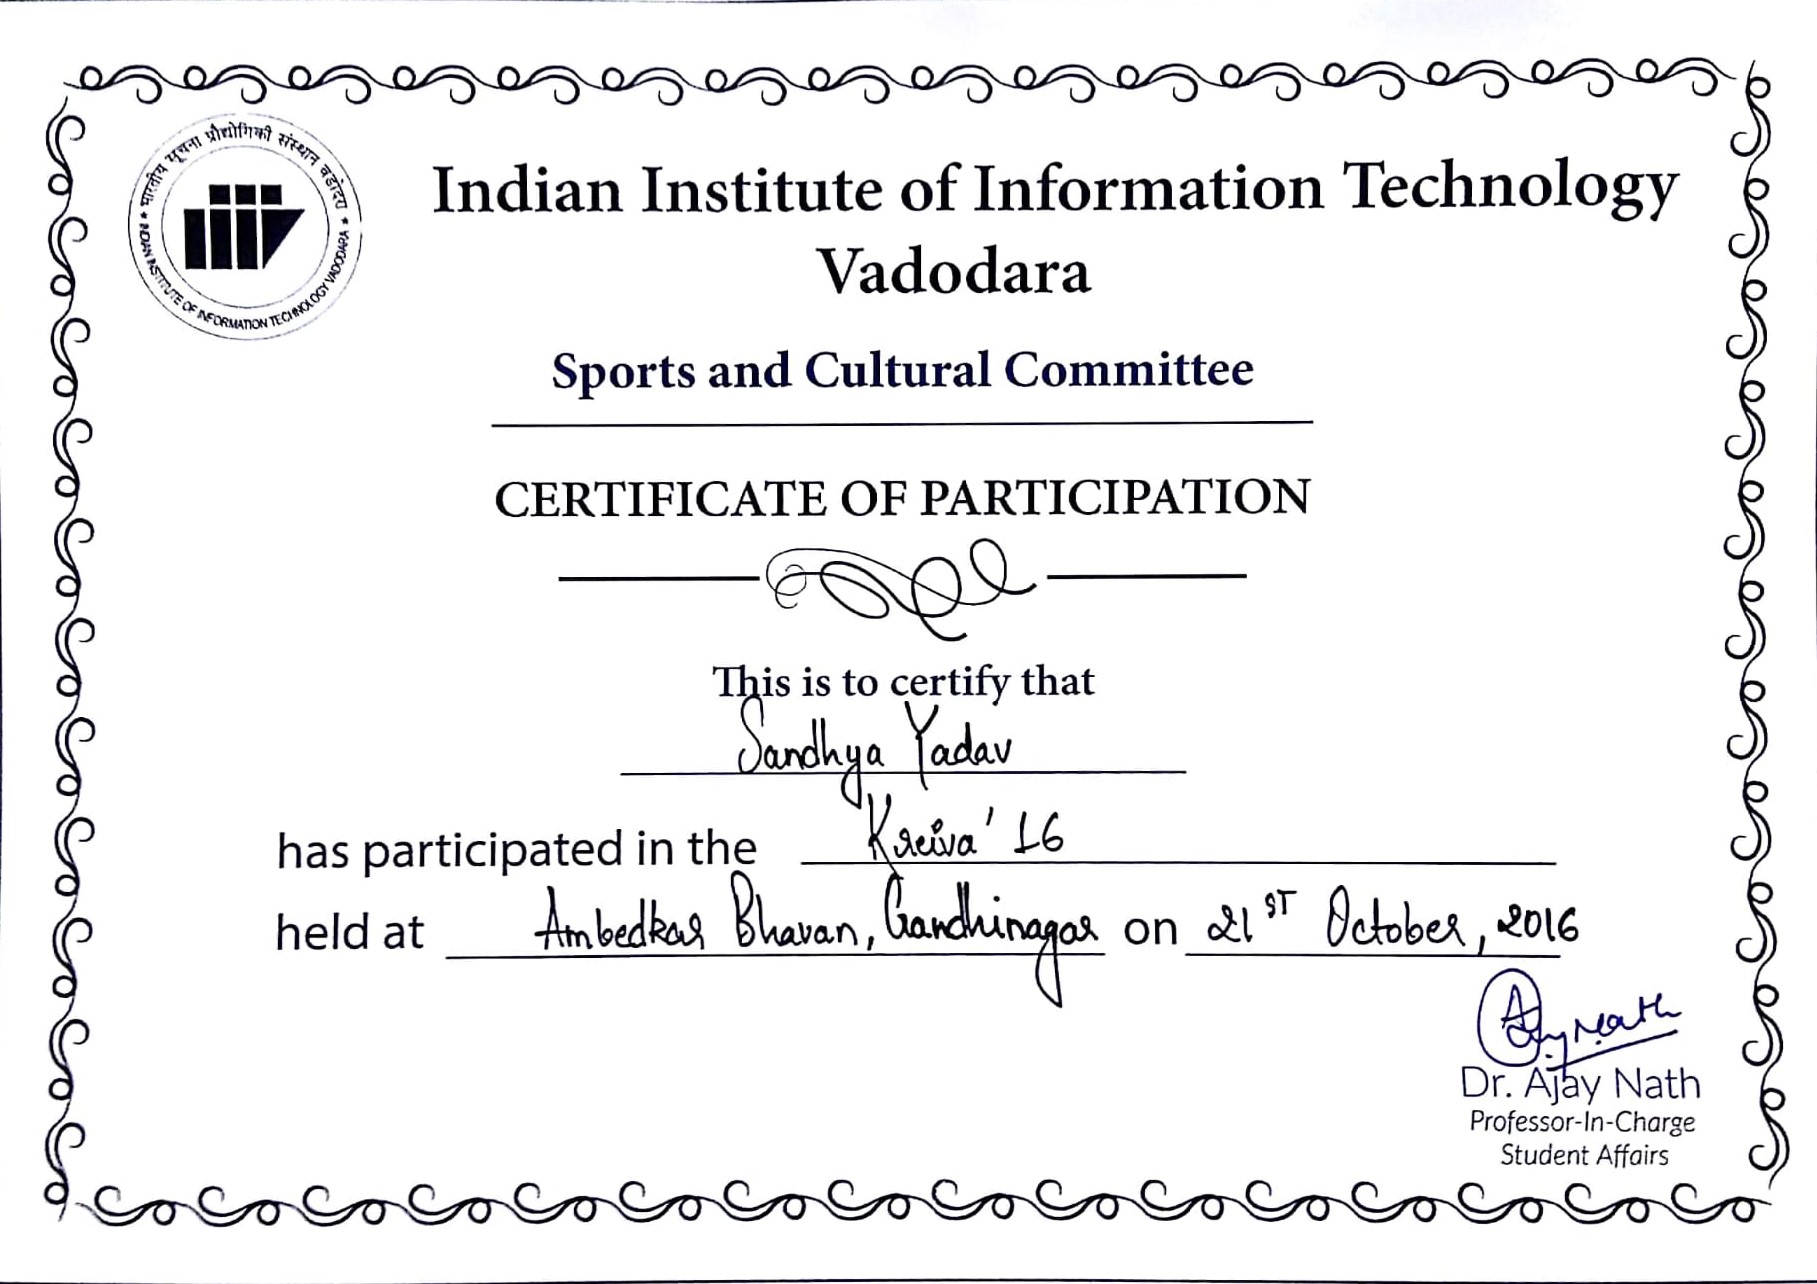 भारतीय सूचना प्रौद्योगिकी संस्थान वडोदरा
INDIAN INSTITUTE OF INFORMATION TECHNOLOGY VADODARA
Indian Institute of Information Technology
Vadodara
Sports and Cultural Committee
CERTIFICATE OF PARTICIPATION
This is to certify that
Sandhya Yadav
has participated in the Kreiva' 16
held at Ambedkar Bhavan, Gandhinagar on 21ST October, 2016
Ajay Nath
Dr. Ajay Nath
Professor-In-Charge
Student Affairs